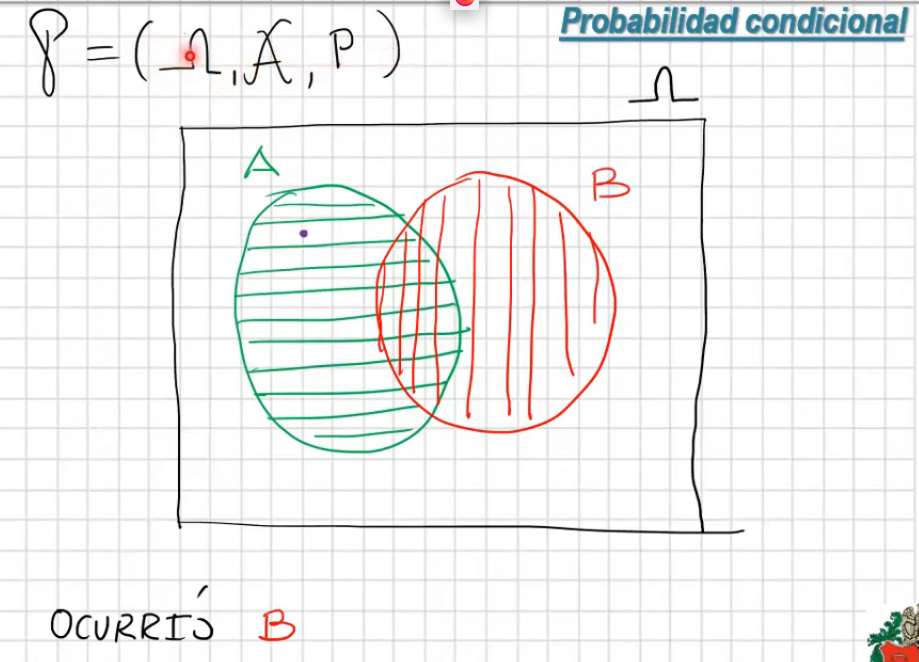 Probabilidad condicional
𝒫 = (Ω, 𝒜, P)
Ω
A
B
OCURRIÓ B